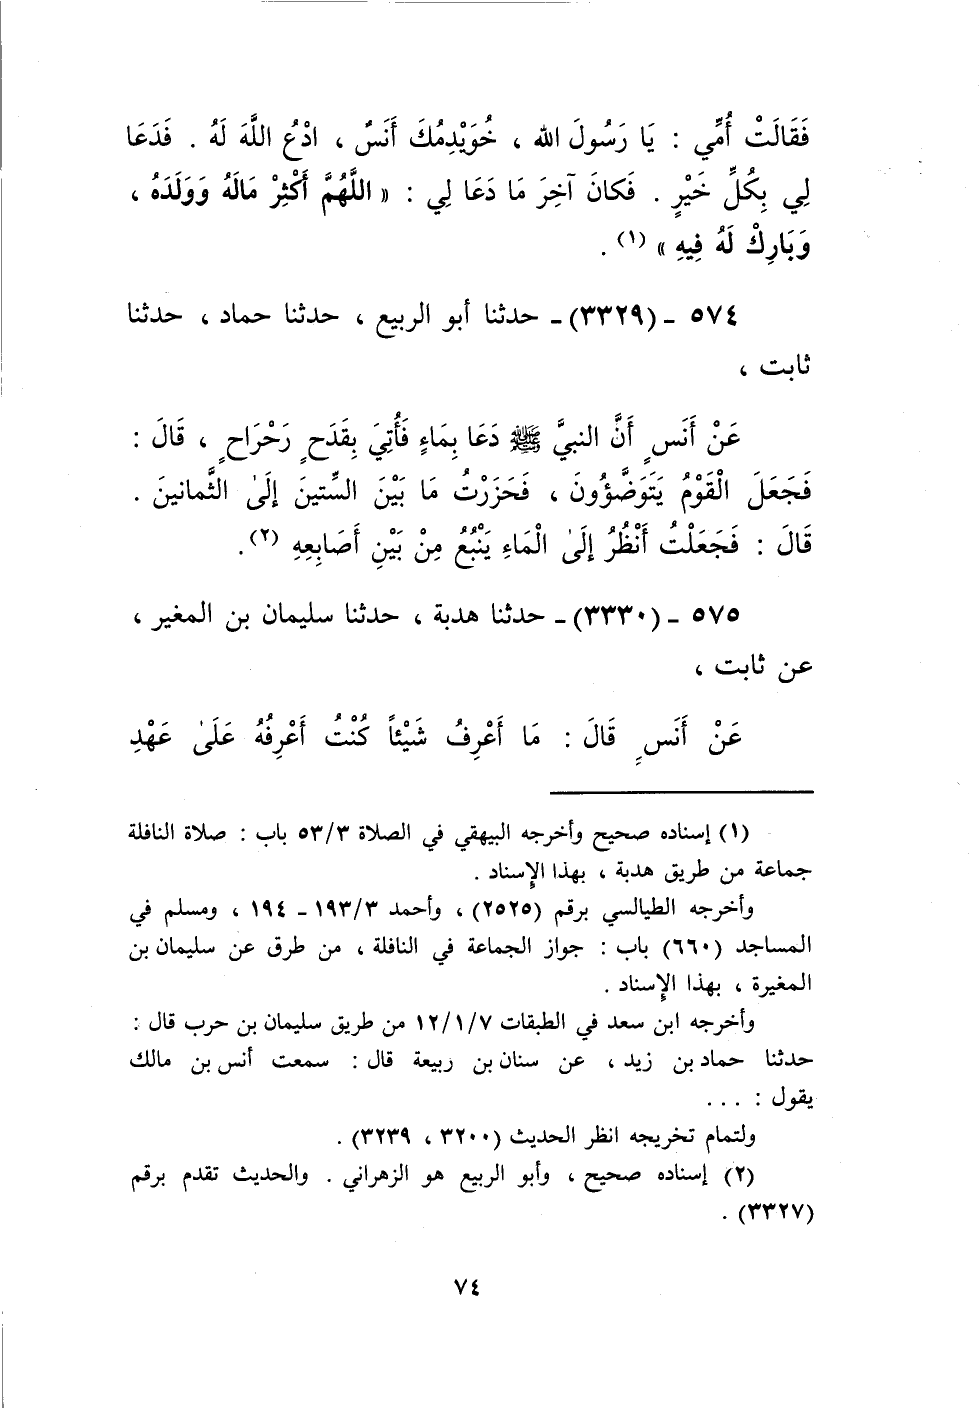 فَقَالَتْ أُمِّي : يَا رَسُولَ الله ، خُوَيْدِمُكَ أَنَسٌ ، ادْعُ اللَّهَ لَهُ . فَدَعَا
لِي بِكُلِّ خَيْرٍ . فَكانَ آخِرَ مَا دَعَا لِي : « اللَّهُمَّ أَكْثِرْ مَالَهُ وَوَلَدَهُ ،
وَبَارِكْ لَهُ فِيهِ » (١) .
٥٧٤ - (٣٣٢٩) - حدثنا أبو الربيع ، حدثنا حماد ، حدثنا
ثابت ،
عَنْ أَنَسٍ أَنَّ النبيَّ ﷺ دَعَا بِمَاءٍ فَأُتِيَ بِقَدَحٍ رَحْرَاحٍ ، قَالَ :
فَجَعَلَ الْقَوْمُ يَتَوَضَّؤُونَ ، فَحَزَرْتُ مَا بَيْنَ السِّتينَ إلَىٰ الثَّمانينَ .
قَالَ : فَجَعَلْتُ أَنْظُرُ إلَىٰ الْمَاءِ يَنْبُعُ مِنْ بَيْنِ أَصَابِعِهِ (٢) .
٥٧٥ - (٣٣٣٠) - حدثنا هدبة ، حدثنا سليمان بن المغير ،
عن ثابت ،
عَنْ أَنَسٍ قَالَ : مَا أَعْرِفُ شَيْئاً كُنْتُ أَعْرِفُهُ عَلَىٰ عَهْدِ
(١) إسناده صحيح وأخرجه البيهقي في الصلاة ٥٣/٣ باب : صلاة النافلة
جماعة من طريق هدبة ، بهذا الإسناد .
وأخرجه الطيالسي برقم (٢٥٢٥) ، وأحمد ١٩٣/٣ - ١٩٤ ، ومسلم في
المساجد (٦٦٠) باب : جواز الجماعة في النافلة ، من طرق عن سليمان بن
المغيرة ، بهذا الإسناد .
وأخرجه ابن سعد في الطبقات ١٢/١/٧ من طريق سليمان بن حرب قال :
حدثنا حماد بن زيد ، عن سنان بن ربيعة قال : سمعت أنس بن مالك
يقول : . . .
ولتمام تخريجه انظر الحديث (٣٢٠٠ ، ٣٢٣٩) .
(٢) إسناده صحيح ، وأبو الربيع هو الزهراني . والحديث تقدم برقم
(٣٣٢٧) .
٧٤